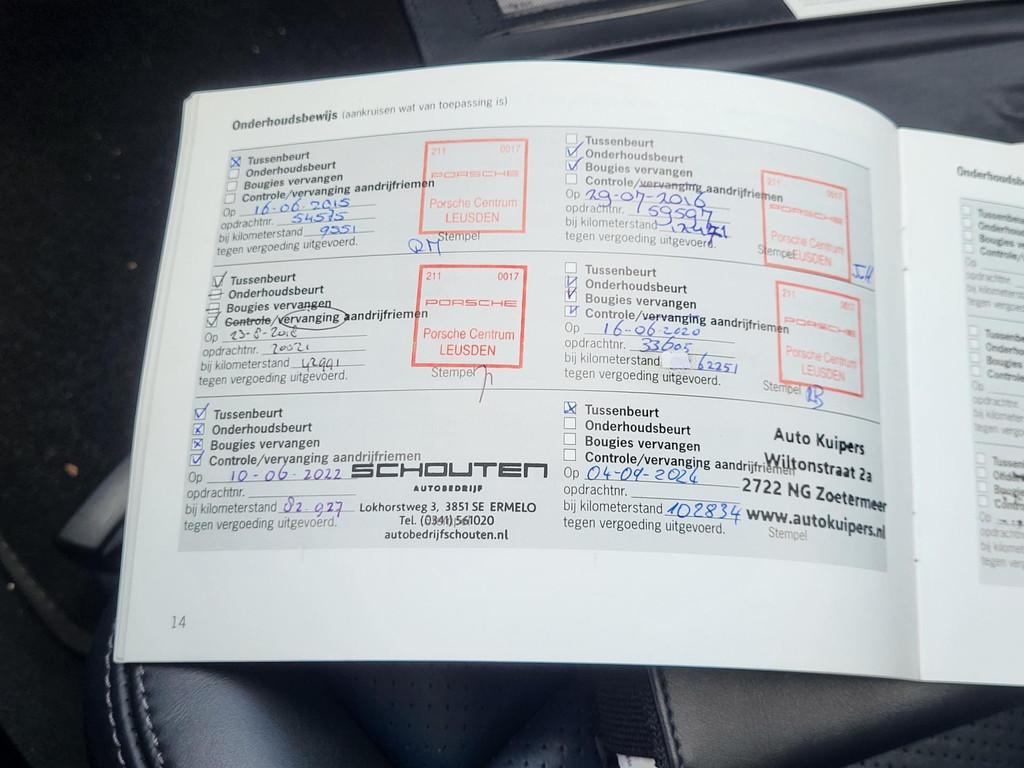 Onderhoudsbewijs (aankruisen wat van toepassing is)
Tussenbeurt
Onderhoudsbeurt
Bougies vervangen
Controle/vervanging aandrijfriemen
Op 16-06-2015
opdrachtnr. 54575
bij kilometerstand 9351
tegen vergoeding uitgevoerd.
Stempel
211 0017
PORSCHE
Porsche Centrum
LEUSDEN
Tussenbeurt
Onderhoudsbeurt
Bougies vervangen
Controle/vervanging aandrijfriemen
Op 29-07-2016
opdrachtnr. 59597
bij kilometerstand
tegen vergoeding uitgevoerd.
Stempel
211 0017
PORSCHE
Porsche Centrum
LEUSDEN
Tussenbeurt
Onderhoudsbeurt
Bougies vervangen
Controle/vervanging aandrijfriemen
Op 23-8-2018
opdrachtnr.
bij kilometerstand 42991
tegen vergoeding uitgevoerd.
Stempel
211 0017
PORSCHE
Porsche Centrum
LEUSDEN
Tussenbeurt
Onderhoudsbeurt
Bougies vervangen
Controle/vervanging aandrijfriemen
Op 16-06-2020
opdrachtnr. 33605
bij kilometerstand 62251
tegen vergoeding uitgevoerd.
Stempel
211 0017
PORSCHE
Porsche Centrum
LEUSDEN
Tussenbeurt
Onderhoudsbeurt
Bougies vervangen
Controle/vervanging aandrijfriemen
Op 10-06-2022
opdrachtnr.
bij kilometerstand 82.927
tegen vergoeding uitgevoerd.
SCHOUTEN
AUTOBEDRIJF
Lokhorstweg 3, 3851 SE ERMELO
Tel. (0341) 561020
autobedrijfschouten.nl
Tussenbeurt
Onderhoudsbeurt
Bougies vervangen
Controle/vervanging aandrijfriemen
Op 04-09-2024
opdrachtnr.
bij kilometerstand 102834
tegen vergoeding uitgevoerd.
Stempel
Auto Kuipers
Wiltonstraat 2a
2722 NG Zoetermeer
www.autokuipers.nl
14